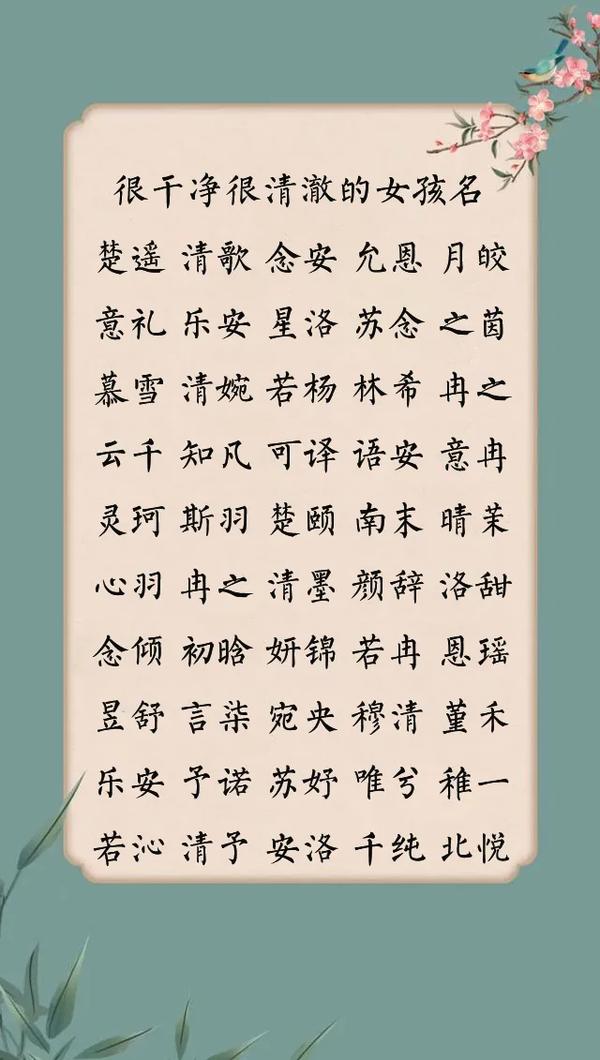 很干净很清澈的女孩名
楚遥 清歌 念安 允恩 月皎
意礼 乐安 星洛 苏念 之茵
慕雪 清婉 若杨 林希 冉之
云千 知凡 可译 语安 意冉
灵珂 斯羽 楚颐 南末 晴茉
心羽 冉之 清墨 颜辞 洛甜
念倾 初晗 妍锦 若冉 恩瑶
昱舒 言柒 宛央 穆清 堇禾
乐安 予诺 苏妤 唯兮 稚一
若沁 清予 安洛 千纯 北悦